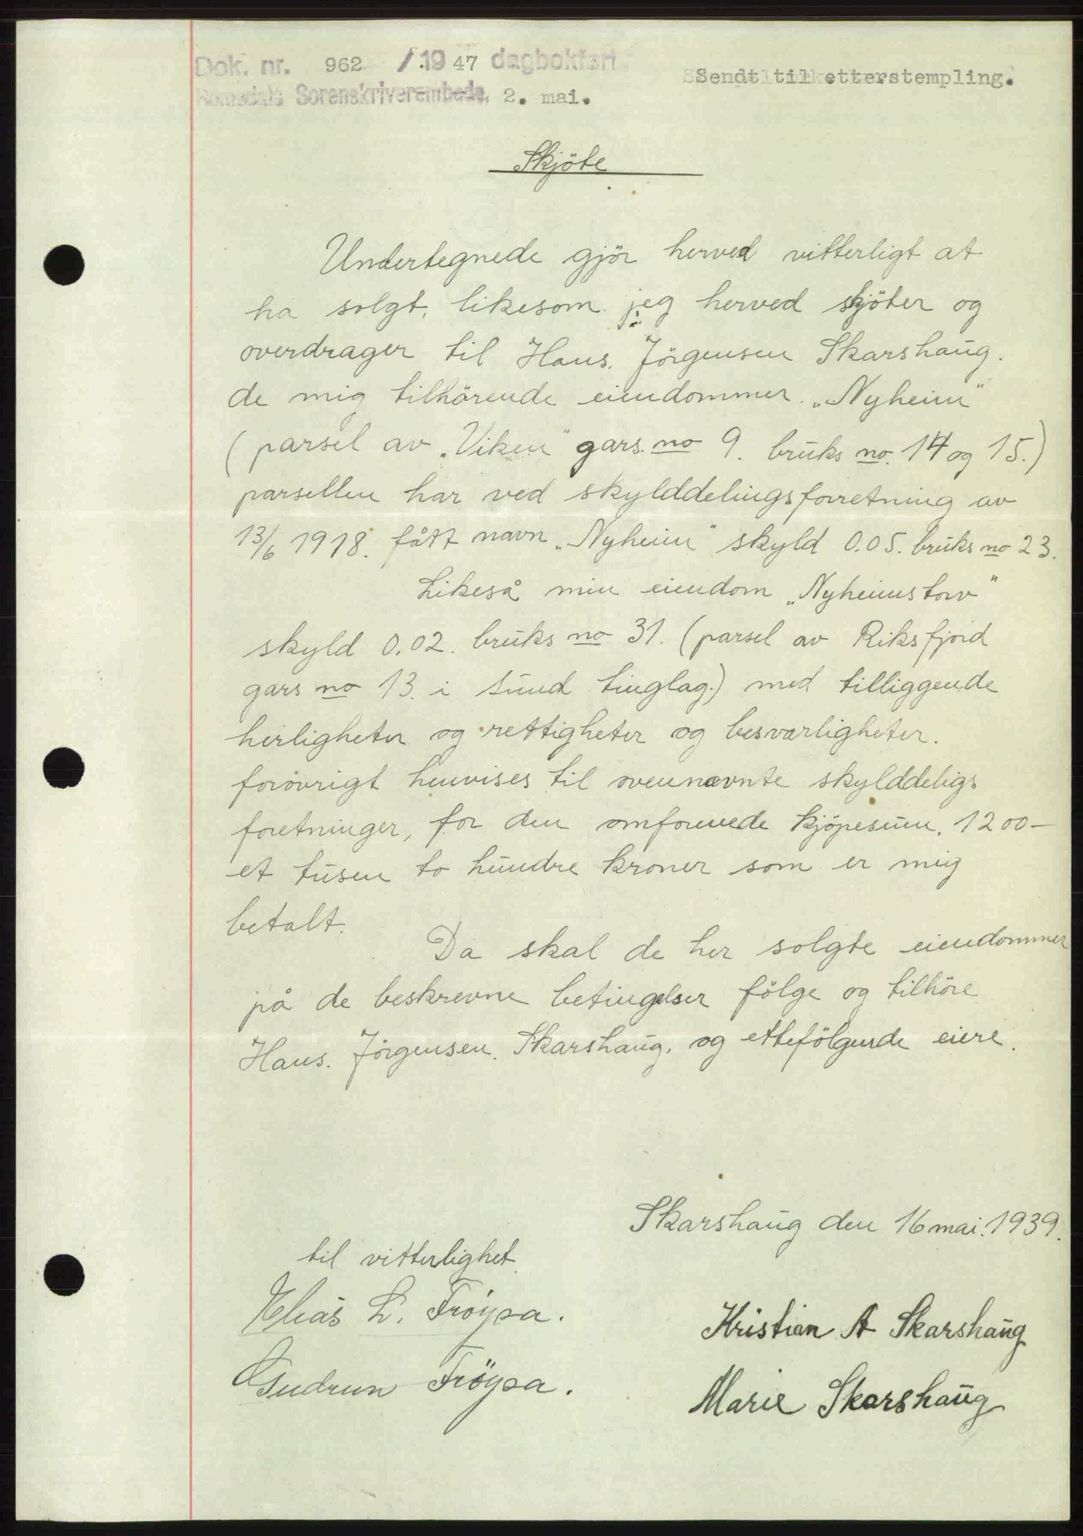 Dok. nr. 962 / 1947 dagbokført
Sendt til etterstempling.
Romsdals Sorenskriverembede, 2. mai.
Skjöte
Undertegnede gjör herved vitterligt at
ha solgt, likesom jeg herved skjöter og
overdrager til Hans. Jörgensen Skarshaug.
de mig tilhörende eiendommer. „Nyheim"
(parsel av „Viken" gars. no 9. bruks no. 14 og 15.)
parsellen har ved skylddelingsforretning av
13/6 1918. fått navn „Nyheim" skyld 0.05. bruks no 23.
Likeså min eiendom „Nyheimstorv"
skyld 0.02. bruks no 31. (parsel av Riksfjord
gars no 13. i Sund tinglag.) med tilliggende
herligheter og rettigheter og besværligheter.
forövrigt henvises til ovennævnte skylddeligs
foretninger, for den omforenede kjöpesum. 1200-
et tusen to hundre kroner som er mig
betalt.
Da skal de her solgte eiendommer
på de beskrevne betingelser fölge og tilhöre
Hans. Jörgensen. Skarshaug. og ettefölgende eiere.
Skarshaug den 16 mai. 1939.
til vitterlighet.
Elias L. Tröysa.
Kristian A Skarshaug
Gudrun Tröysa.
Marie Skarshaug